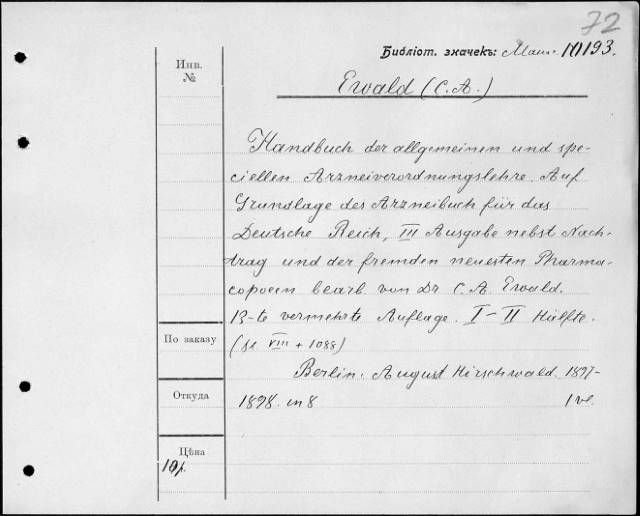 72
Библіот. значекъ: Маш. III193.
Инв. №
Ewald (C. A.)
Handbuch der allgemeinen und spe-
ciellen Arzneiverordnungslehre. Auf
Grundlage des Arzneibuch für das
Deutsche Reich, III Ausgabe nebst Nach-
trag und der fremden neuesten Pharma-
copoeen bearb. von Dr C. A. Ewald.
13-te vermehrte Auflage. I–II Hälfte.
По заказу
VIII + 1088)
Berlin. August Hirschwald. 1897-
Откуда
1898. in 8
1 vl.
Цѣна
10р.